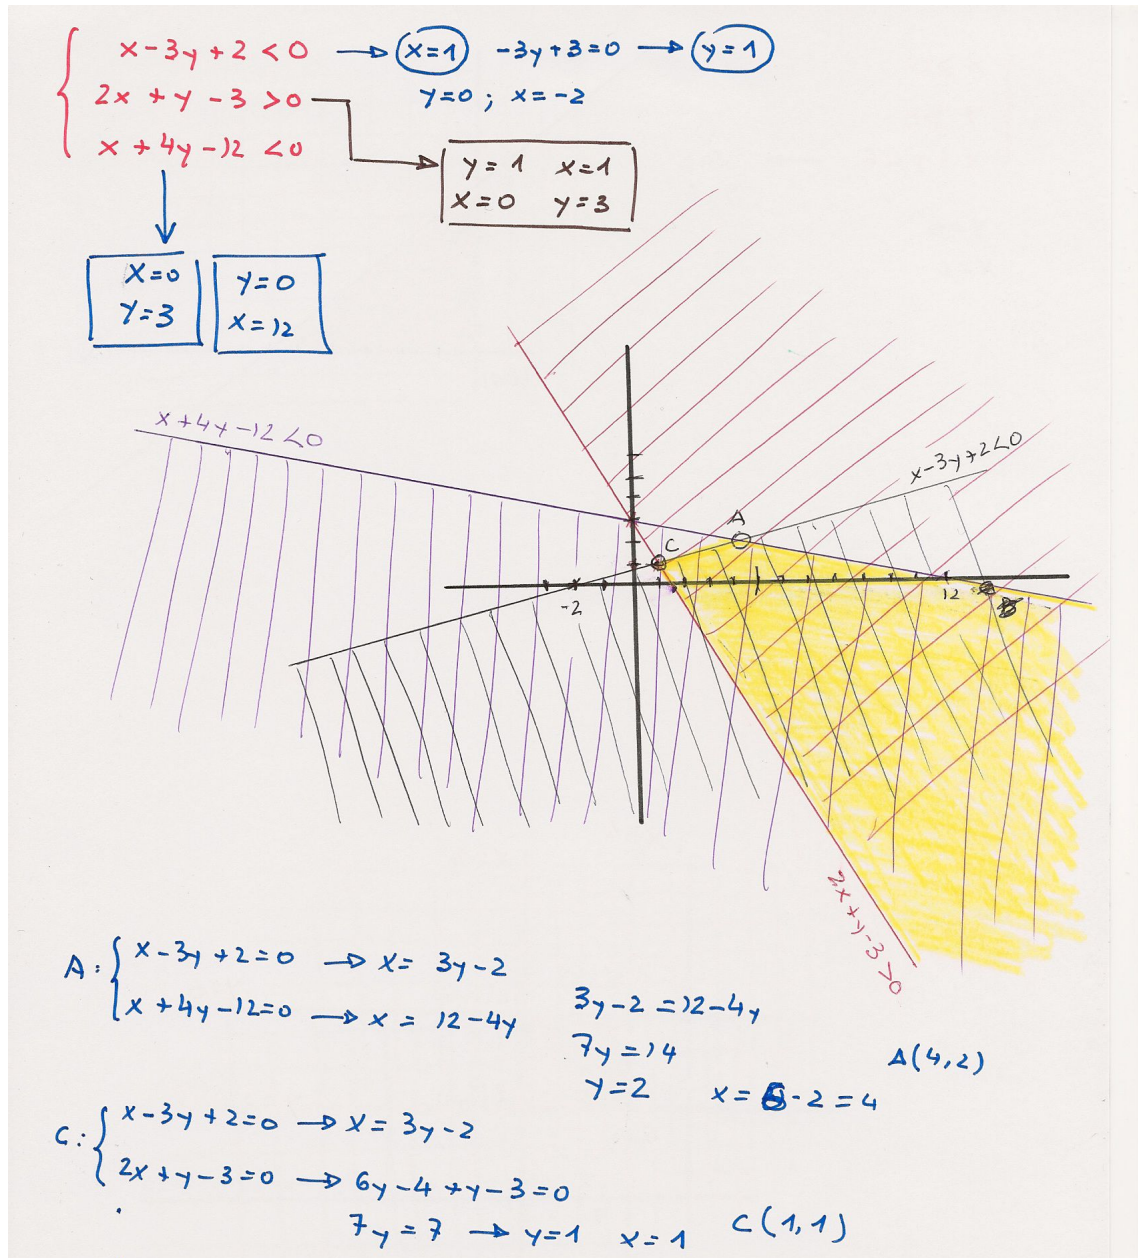 x-3y+2<0 → x=1 -3y+3=0 → y=1
2x+y-3>0 y=0; x=-2
x+4y-12<0
y=1 x=1
x=0 y=3
x=0 y=0
y=3 x=12
x+4y-12<0
x-3y+2<0
A
C
-2
12
B
2x+y-3>0
A: x-3y+2=0 → x= 3y-2
x+4y-12=0 → x= 12-4y
3y-2=12-4y
7y=14
y=2 x=6-2=4
A(4,2)
C: x-3y+2=0 → x=3y-2
2x+y-3=0 → 6y-4+y-3=0
7y=7 → y=1 x=1 C(1,1)